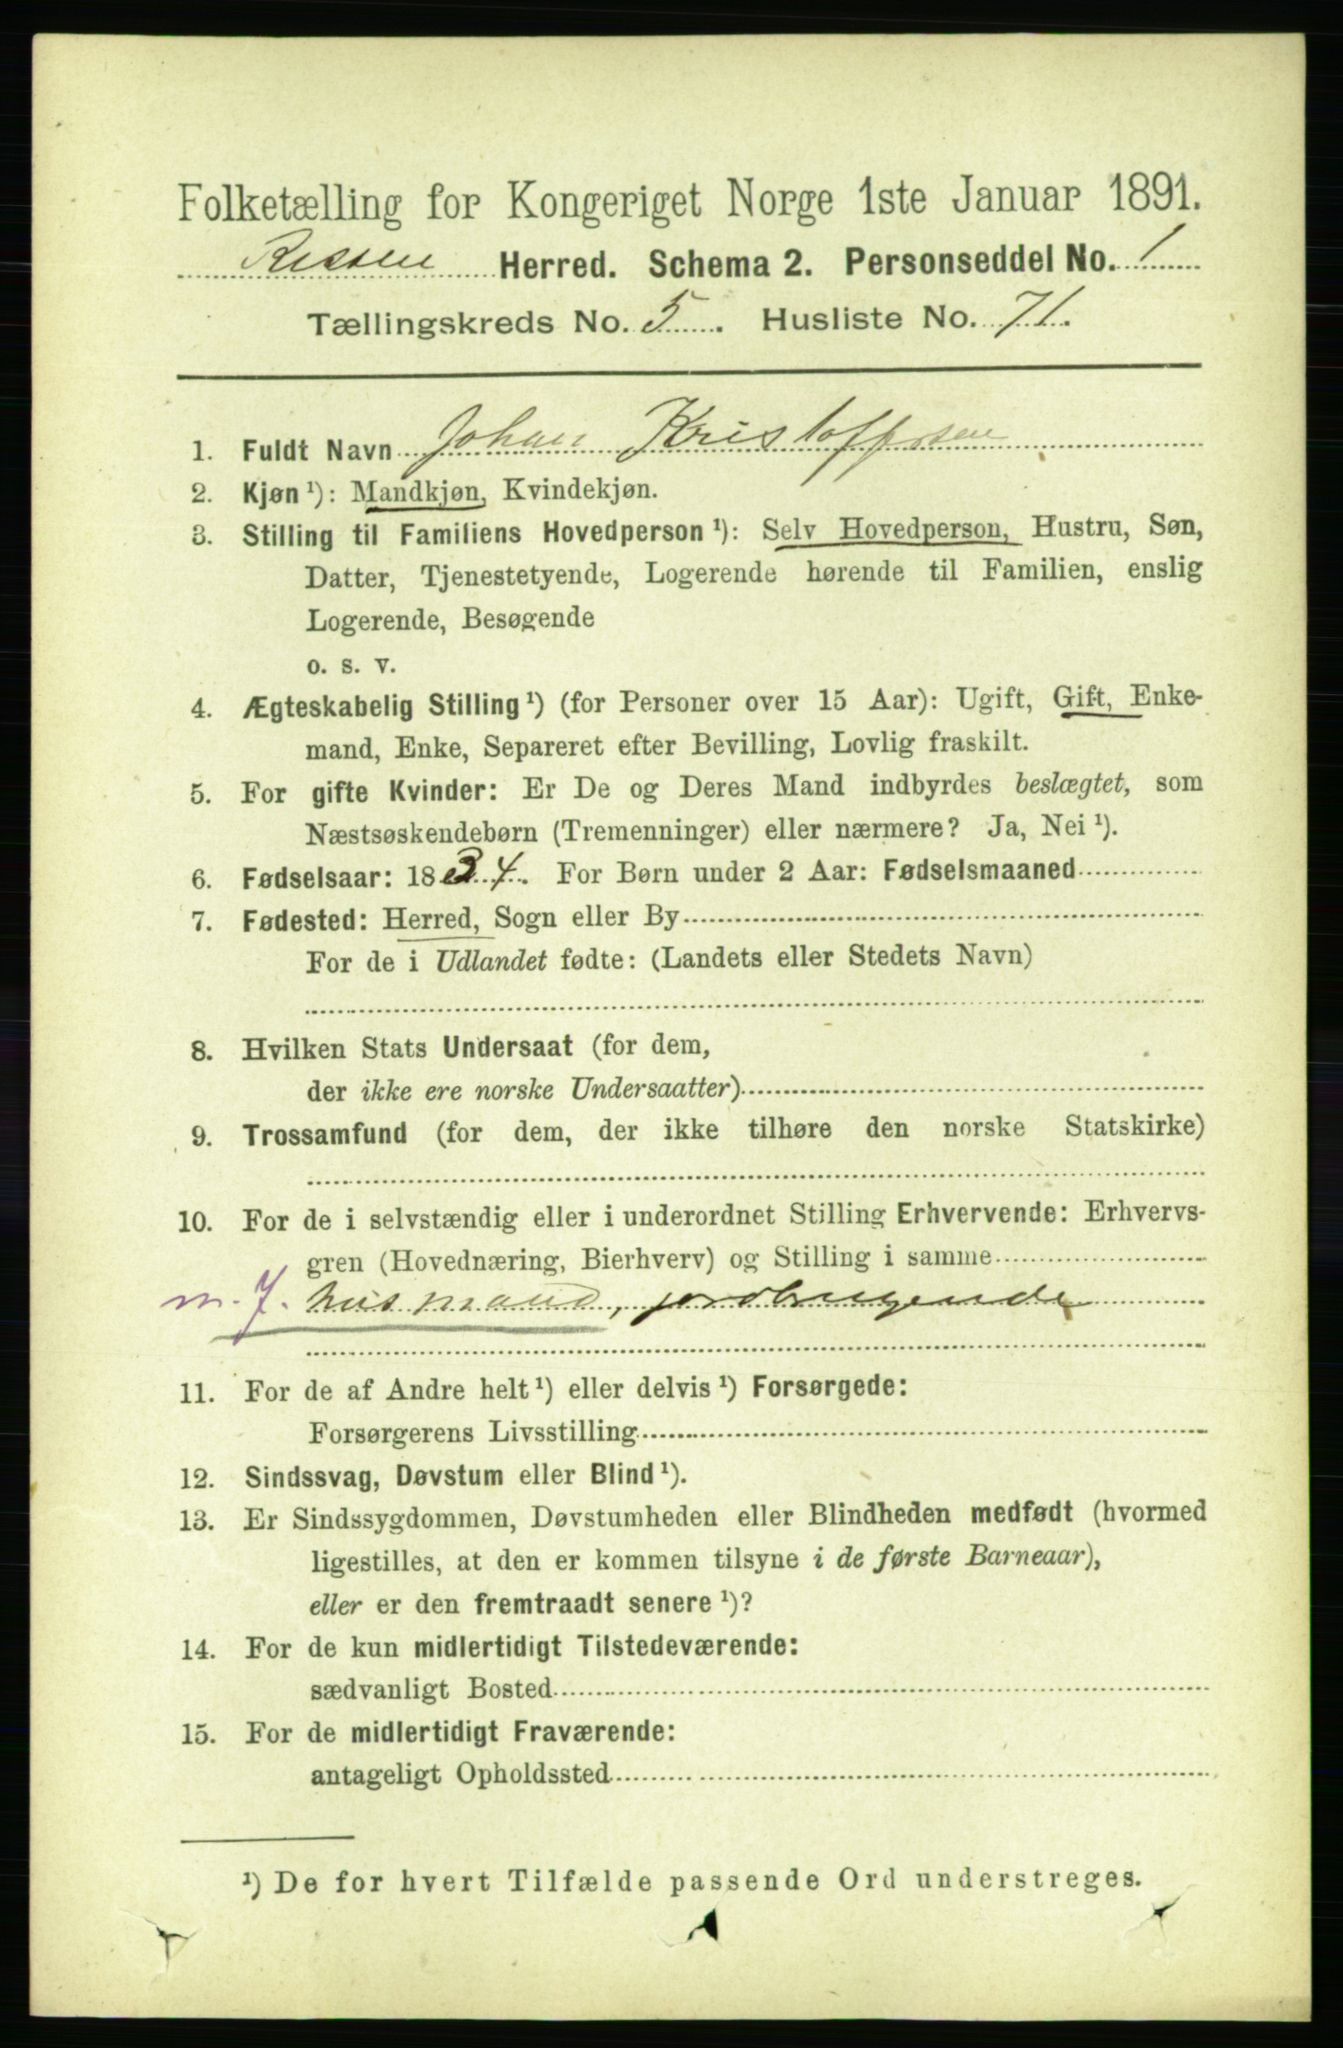 Folketælling for Kongeriget Norge 1ste Januar 1891.
Rissen Herred. Schema 2. Personseddel No. 1
Tællingskreds No. 5. Husliste No. 71.
1. Fuldt Navn Johan Kristoffersen
2. Kjøn ¹): Mandkjøn, Kvindekjøn.
3. Stilling til Familiens Hovedperson ¹): Selv Hovedperson, Hustru, Søn,
Datter, Tjenestetyende, Logerende hørende til Familien, enslig
Logerende, Besøgende
o. s. v.
4. Ægteskabelig Stilling ¹) (for Personer over 15 Aar): Ugift, Gift, Enke-
mand, Enke, Separeret efter Bevilling, Lovlig fraskilt.
5. For gifte Kvinder: Er De og Deres Mand indbyrdes beslægtet, som
Næstsøskendebørn (Tremenninger) eller nærmere? Ja, Nei ¹).
6. Fødselsaar: 1834. For Børn under 2 Aar: Fødselsmaaned
7. Fødested: Herred, Sogn eller By
For de i Udlandet fødte: (Landets eller Stedets Navn)
8. Hvilken Stats Undersaat (for dem,
der ikke ere norske Undersaatter)
9. Trossamfund (for dem, der ikke tilhøre den norske Statskirke)
10. For de i selvstændig eller i underordnet Stilling Erhvervende: Erhvervs-
gren (Hovednæring, Bierhverv) og Stilling i samme
m. J. husmand, jordbrugende
11. For de af Andre helt ¹) eller delvis ¹) Forsørgede:
Forsørgerens Livsstilling
12. Sindssvag, Døvstum eller Blind ¹).
13. Er Sindssygdommen, Døvstumheden eller Blindheden medfødt (hvormed
ligestilles, at den er kommen tilsyne i de første Barneaar),
eller er den fremtraadt senere ¹)?
14. For de kun midlertidigt Tilstedeværende:
sædvanligt Bosted
15. For de midlertidigt Fraværende:
antageligt Opholdssted
¹) De for hvert Tilfælde passende Ord understreges.